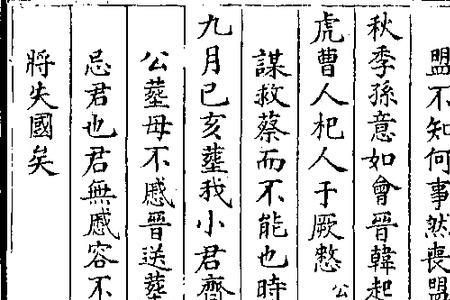 盟不知何事然喪盟
秋季孫意如會晉韓起
虎曹人杞人于厥憖公
謀救蔡而不能也時
九月己亥塟我小君齊
公塟母不慼晉送塟
忌君也君無慼容不
將失國矣